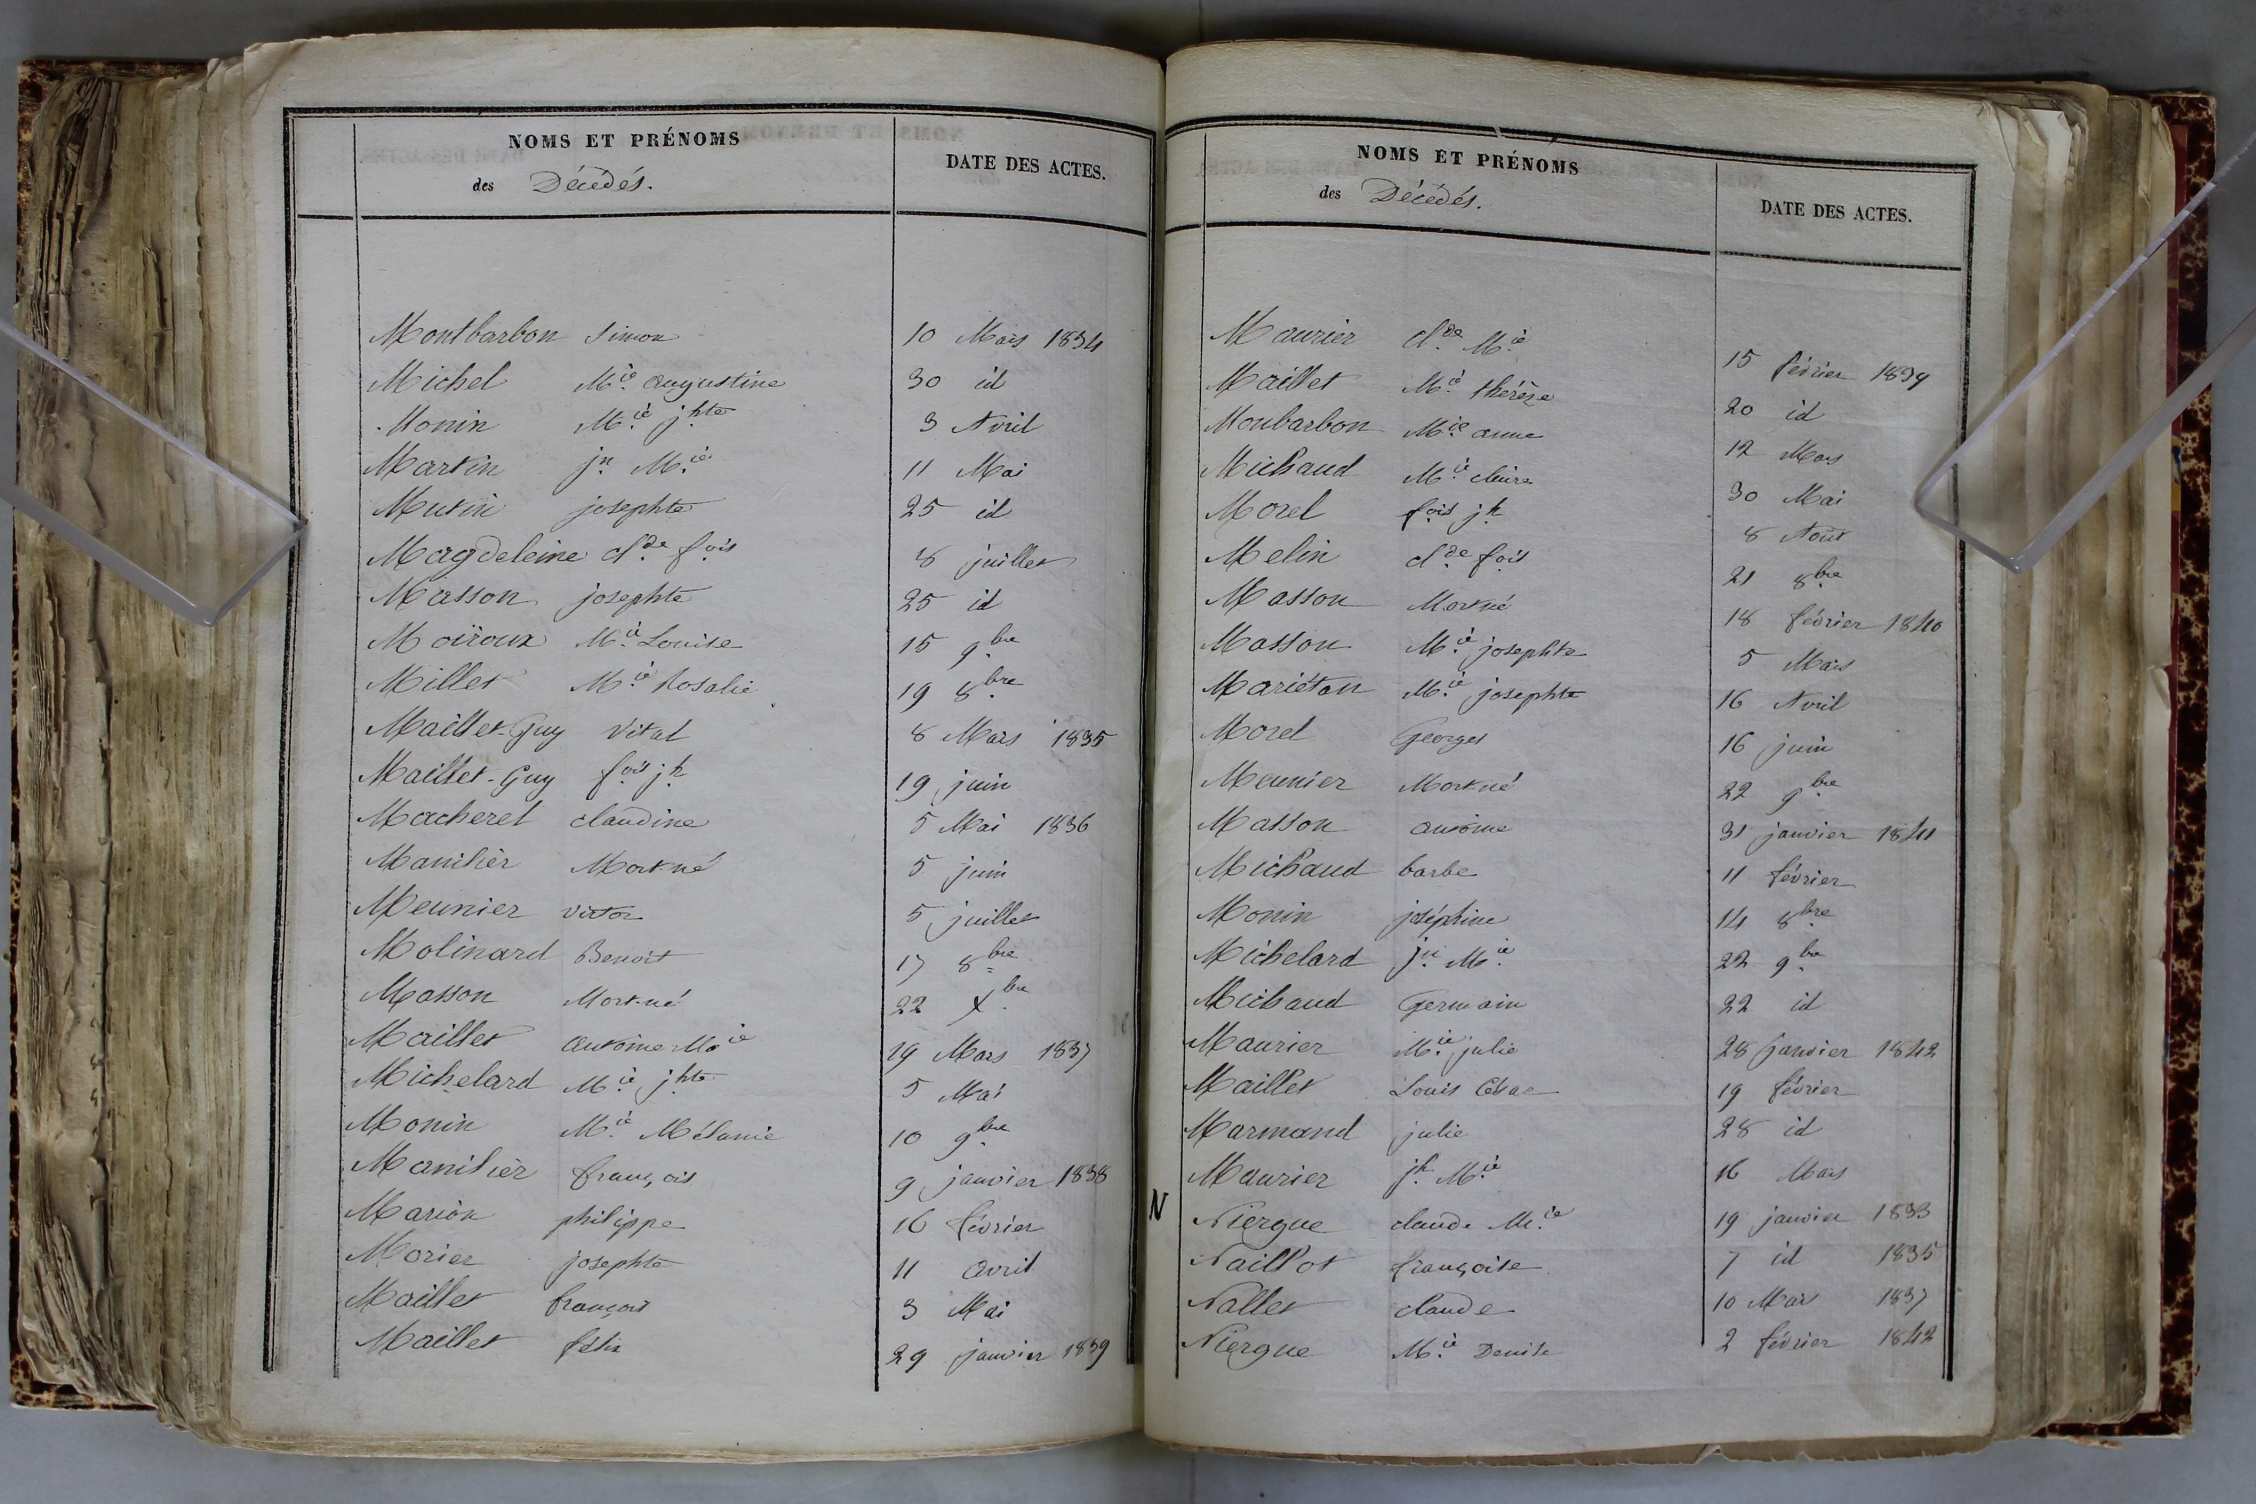 NOMS ET PRÉNOMS
des Décédés.
DATE DES ACTES.
Montbarbon Simon 10 Mars 1834
Michel Mie augustine 30 id
Monin Mie jhte 3 Avril
Martin jn Mie 11 Mai
Mutin josephte 25 id
Magdeleine clde fois 8 juillet
Masson josephte 25 id
Moiroux Mie Louise 15 9bre
Millet Mie Rosalie 19 8bre
Maillet-Guy Vital 8 Mars 1835
Maillet-Guy fois jh 19 juin
Macherel claudine 5 Mai 1836
Manilier Mort-né 5 juin
Meunier victor 5 juillet
Molinard Benoit 17 8bre
Masson Mort-né 22 Xbre
Maillet antoine Mie 19 Mars 1837
Michelard Mie jhte 5 Mai
Monin Mie Mélanie 10 9bre
Manilier françois 9 janvier 1838
Marion philippe 16 février
Morier josephte 11 avril
Maillet françois 3 Mai
Maillet félix 29 janvier 1839
NOMS ET PRÉNOMS
des Décédés.
DATE DES ACTES.
Maurier clde Mie 15 février 1839
Maillet Mie thérèze 20 id
Monbarbon Mie anne 12 Mars
Michaud Mie claire 30 Mai
Morel fois jh 8 Aout
Melin clde fois 21 8bre
Masson Mort né 18 février 1840
Masson Mie josephte 5 Mars
Mariéton Mie josephte 16 Avril
Morel Georges 16 juin
Meunier Mort né 22 9bre
Masson antoine 31 janvier 1841
Michaud barbe 11 février
Monin joséphine 14 8bre
Michelard jn Mie 22 9bre
Michaud Germain 22 id
Maurier Mie julie 28 janvier 1842
Maillet Louis César 19 février
Marmand julie 28 id
Maurier jh Mie 16 Mars
N Niergue claude Mie 19 janvier 1833
Naillot françoise 7 id 1835
Nallet claude 10 Mars 1837
Niergue Mie Denise 2 février 1842